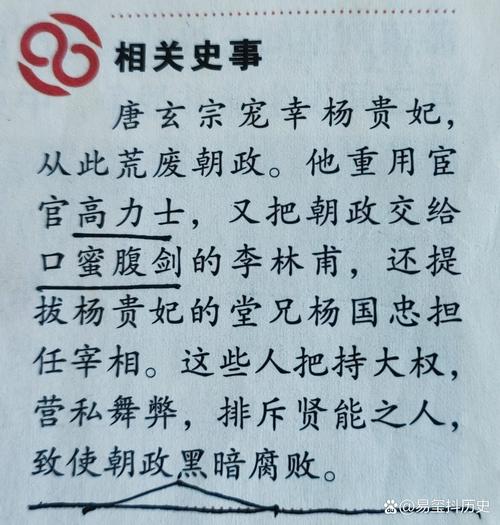 相关史事
唐玄宗宠幸杨贵妃，
从此荒废朝政。他重用宦
官高力士，又把朝政交给
口蜜腹剑的李林甫，还提
拔杨贵妃的堂兄杨国忠担
任宰相。这些人把持大权，
营私舞弊，排斥贤能之人，
致使朝政黑暗腐败。
易玺抖历史